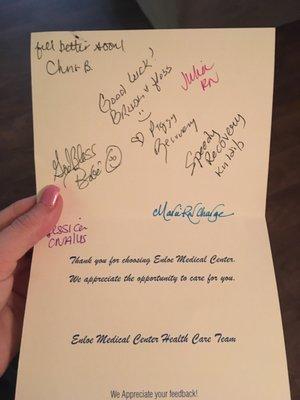 feel better soon!
Chris B.
Good Luck!
Brush & floss
Julia
RN
Piggy
Recovery
Speedy
Recovery
God Bless
Babe
Charge
CNA/US
Thank you for choosing Enloe Medical Center.
We appreciate the opportunity to care for you.
Enloe Medical Center Health Care Team
We Appreciate your feedback!